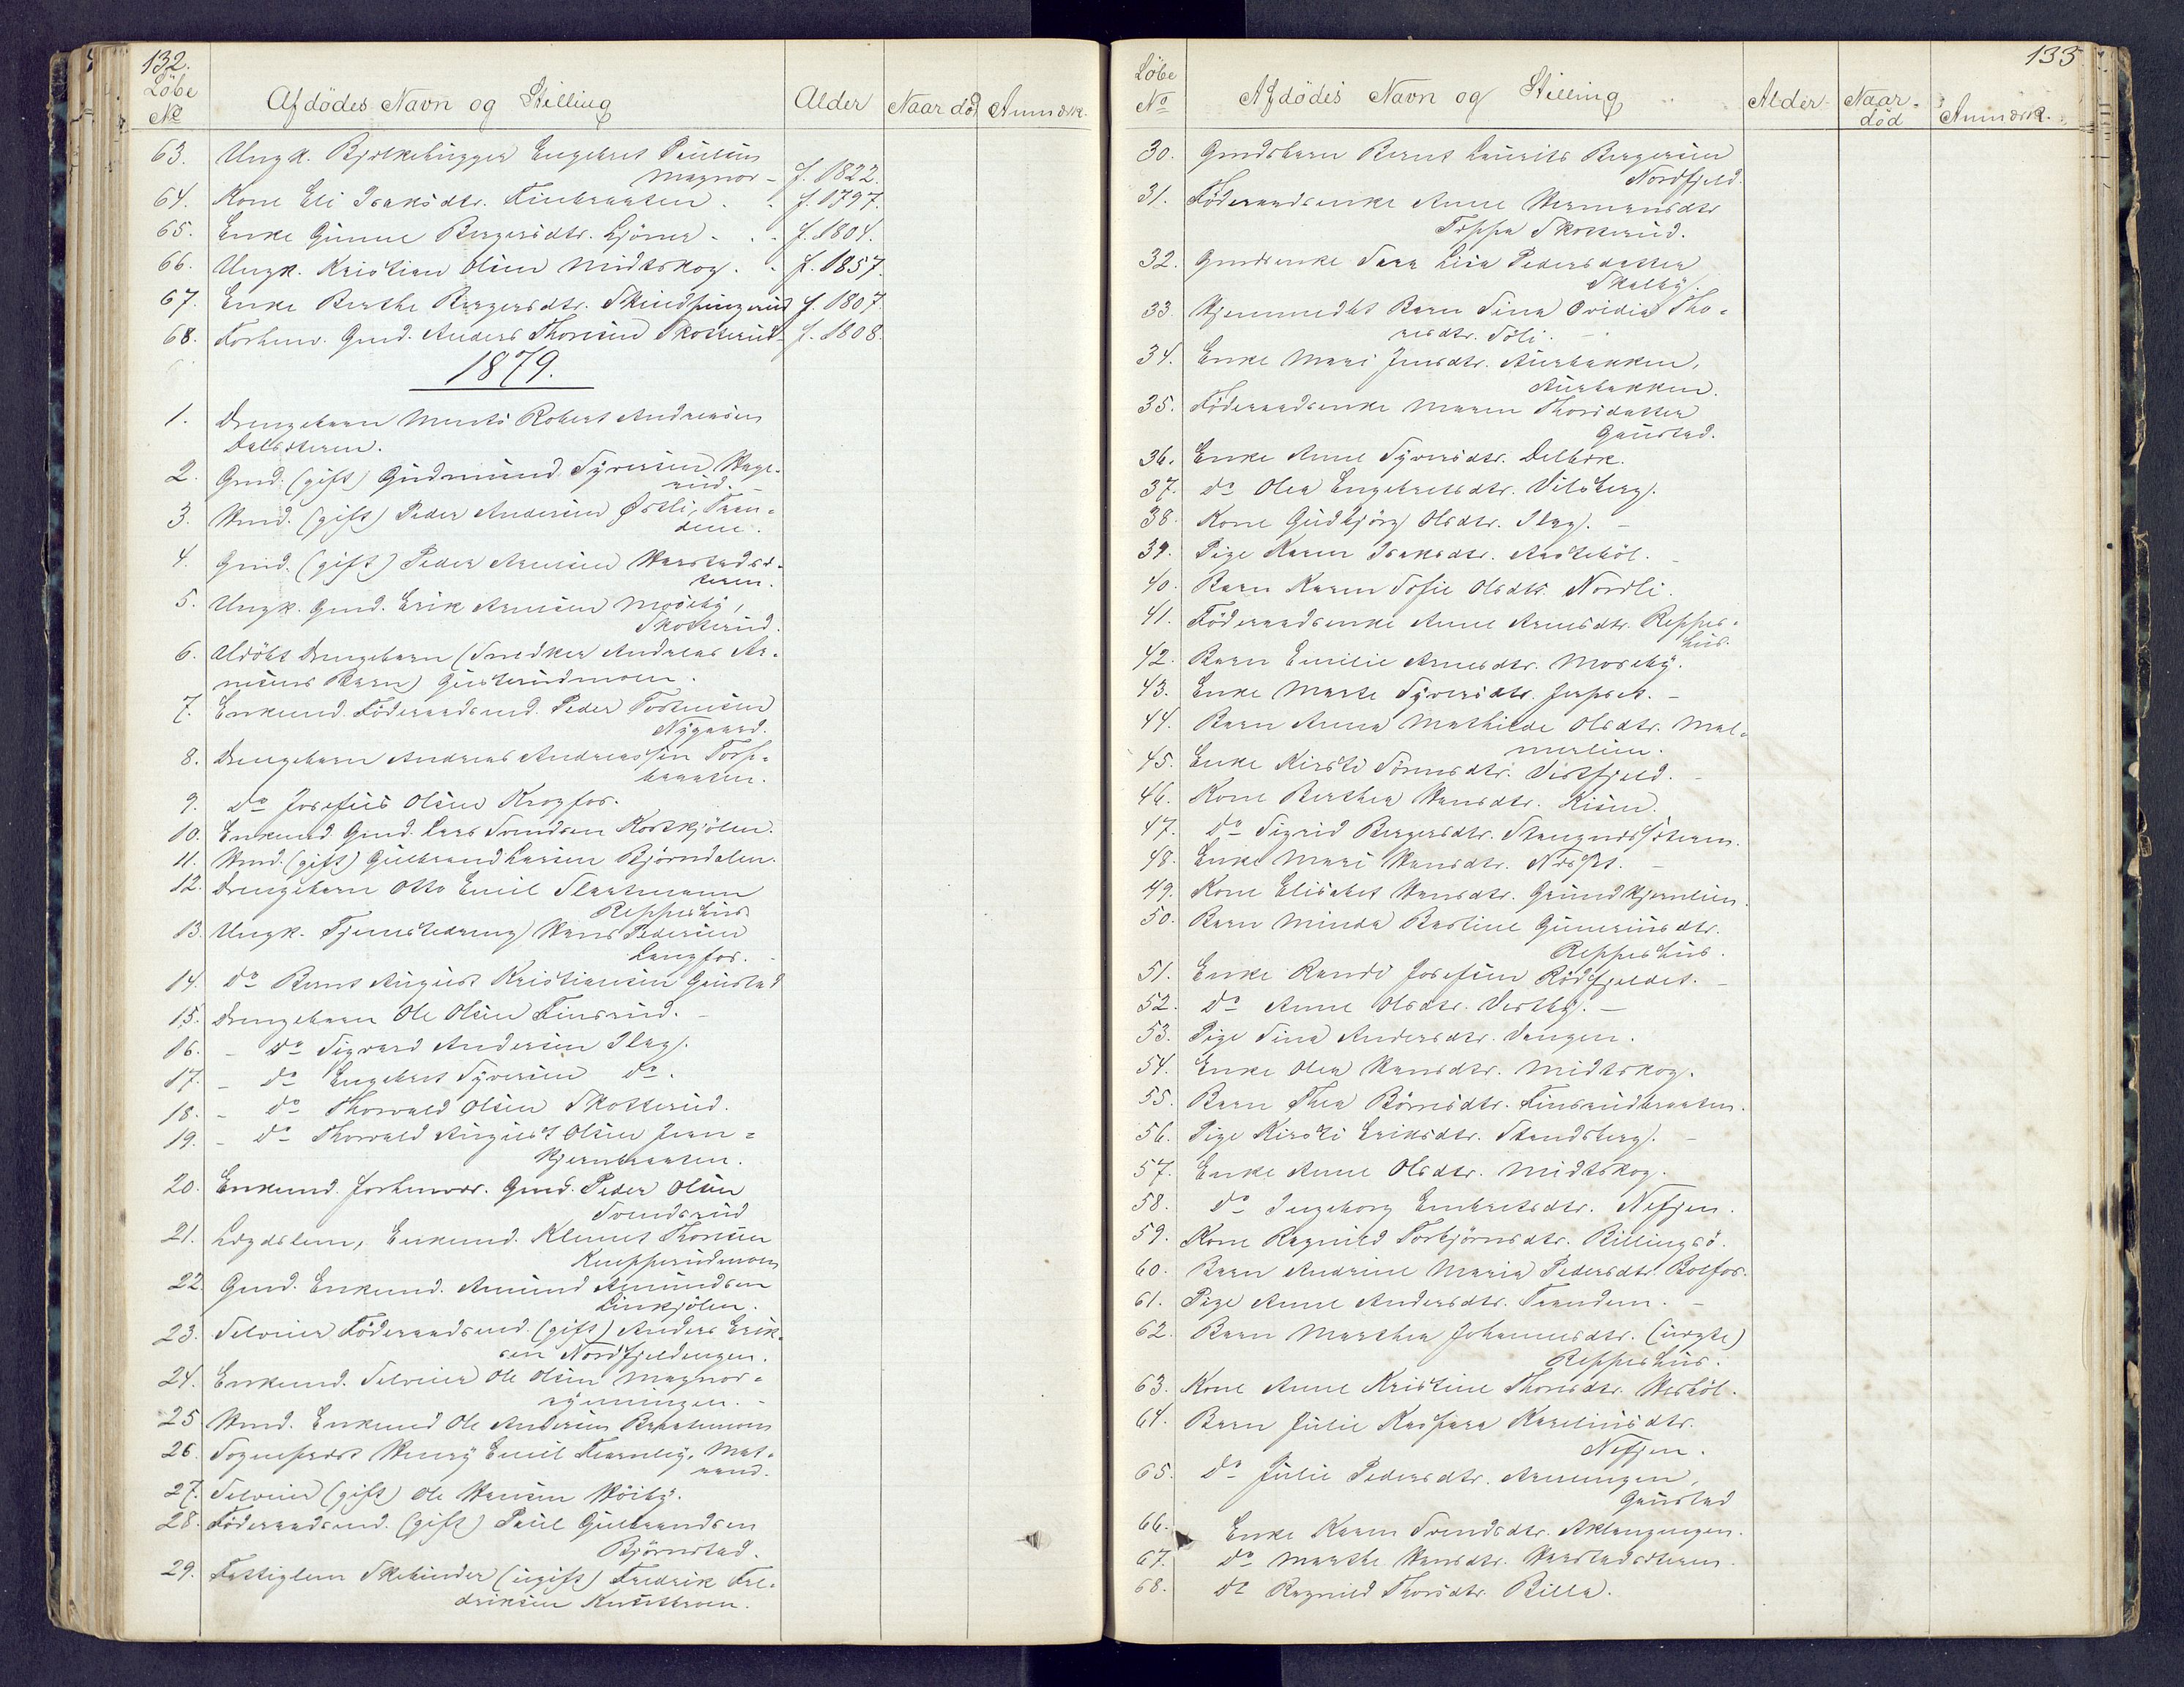 132.
Löbe
No
Afdödes Navn og Stilling
Alder
Naar død
Anmærk.
63. Ungk. Bjelkehugger Engebret Paulsen
Magnor - f. 1822.
64. Kone Eli Isaksdtr. Finbraaten . . f. 1797.
65. Enke Gunne Bergersdtr. Gjörner - . . f. 1804.
66. Ungk. Kristian Olsen Midtskog . . f. 1857.
67. Enke Berthe Bergersdtr. Skindpungrud f. 1807.
68. Forhenv. Gmd. Anders Thoresen Skotterud - f. 1808.
1879.
1. Drengebarn Ments Robert Andreasen
Dalsteren.
2. Gmd. (gift) Gudmund Syversen Hage-
rud.
3. Hmd. (gift) Peder Andersen Østli, Tran-
dem.
4. Gmd. (gift) Peder Arnesen Harstads-
teren.
5. Ungk. Gmd. Erik Arnesen Moseby,
Skotterud.
6. Udöbt Drengebarn (Snedker Andreas Ar-
nesens Barn) Gusterudmoen.
7. Enkemd. Föderaadsmd. Peder Torkelsen
Nygaard.
8. Drengebarn Andreas Andreassen Torp-
braaten.
9. do Josefus Olsen Krogfos.
10. Enkemd. Gmd. Lars Svendsen Kortkjölen.
11. Hmd. (gift) Gulbrand Larsen Björndalen.
12. Drengebarn Otto Emil Slaatmann
Reppeshus
13. Ungk. Tjenestedreng Hans Pedersen
Langfos.
14. do Bernt August Kristiansen Gaustad
15. Drengebarn Ole Olsen Finsrud.
16. - do Sigvard Andersen Flag.
17. - do Engebret Syversen do.
18. - do Thorvald Olsen Skotterud.
19. - do Thorvald August Olsen Jern-
hjernbraaten.
20. Enkemd. forhenvær. Gmd. Peder Olsen
Svendsrud
21. Lægdslem, Enkemd. Klemet Thoresen
Knapperudmoen
22. Gmd. Enkemd. Amund Amundsen
Linkjölen.
23. Selveier Föderaadsmd. (gift) Anders Erik-
sen Nordfjeldengen.
24. Enkemd. Selveier Ole Olsen Magnor-
rydningen.
25. Hmd. Enkemd Ole Andersen
26. Sognepræst Henry Emil Fearnley. Mat-
rand.
27. Selveier (gift) Ole Hansen Höiby.
28. Föderaadsmd. (gift) Paul Gulbrandsen
Björnstad.
29. Fattiglem Skibinder (ugift) Fredrik Fre-
driksen
133
Löbe
No
Afdödes Navn og Stilling
Alder
Naar-
död
Anmærk.
30. Gmdsbarn Bernt Laurits Bergersen
Nordfjeld.
31. Föderaadsenke Anne Hermansdtr
Toppa Skotterud.
32. Gmdsenke Sara Lisa Pedersdatter
Skalby.
33. Hjemmedöbt Barn Sina Ovidia Tho-
resdtr. Söli.
34. Enke Mari Jensdtr. Aurbakken,
Aurbakken.
35. Föderaadsenke Maren Thorsdatter
Gaustad.
36. Enke Anne Syversdtr. Delbæk.
37. do Olea Engebretsdtr. Vilsberg.
38. Kone Gudbjörg Olsdtr. Flag.
39. Pige Karen Isaksdtr. Aasteböl.
40. Barn Karen Sofie Olsdtr. Nordli.
41. Föderaadsenke Anne Arnesdtr. Reppes-
hus.
42. Barn Emilie Arnesdtr. Moseby.
43. Enke Marte Syversdtr. Jerpset.
44. Barn Anna Mathilde Olsdtr. Mal-
merlien.
45. Enke Kirsti Sörensdtr. Vestfjeld.
46. Kone Berthea Hansdtr. Lisen.
47. do Sigrid Bergersdtr. Stangnessteren.
48. Enke Mari Hansdtr. Næset.
49. Kone Elisabet Hansdtr. Grundtjernlien.
50. Barn Minda Bastine Guneriusdtr.
Reppeshus.
51. Enke Randi Josefsen Rödfjeldet.
52. do Anne Olsdtr. Vestby.
53. Pige Sina Andersdtr. Vangen.
54. Enke Olea Hansdtr. Midtskog.
55. Barn Thea Börresdtr. Finsrudbraaten.
56. Pige Kirsti Eriksdtr. Strandsberg.
57. Enke Anne Olsdtr. Midtskog.
58. do Ingeborg Embretsdtr. Nefjen.
59. Kone Ragnild Torbjörnsdtr. Billingsö.
60. Barn Andrine Maria Pedersdtr. Bolfos.
61. Pige Anne Andersdtr. Trandem.
62. Barn Marthea Johannesdtr. (uægte)
Reppeshus.
63. Kone Anne Kristine Thoresdtr. Herböl.
64. Barn Julie Kaspara Kareliusdtr.
Nefjen.
65. do Julie Pedersdtr. Arneengen,
Gaustad
66. Enke Karen Svendsdtr. Aklangengen.
67. do Marthe Hansdtr. Harstadsteren.
68. do Ragnild Thorsdtr. Billa.